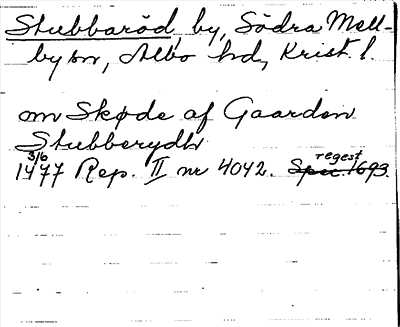 Stubbaröd, by, Södra Mell-
by sn, Albo hd, Krist. l.
om Skøde af Gaarden
Stubberydh
3/6
1477 Rep. II nr 4042. Spec. regest 1693.